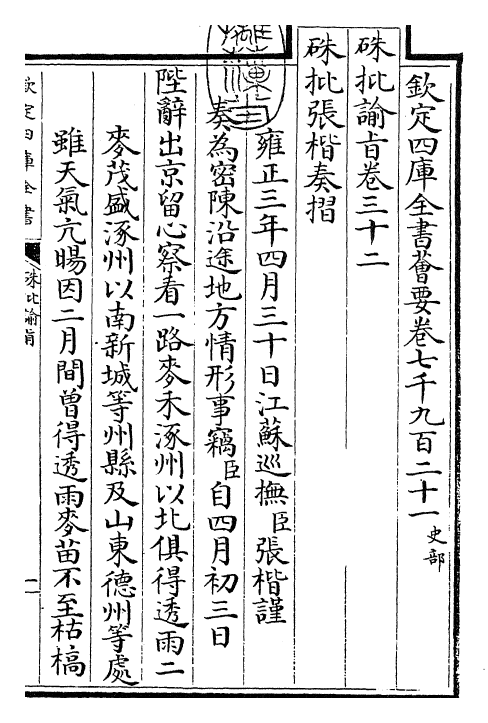 欽定四庫全書薈要卷七千九百二十一 史部
硃批諭旨卷三十二
硃批張楷奏摺
雍正三年四月三十日江蘇巡撫臣張楷謹
奏為密陳沿途地方情形事竊臣自四月初三日
陛辭出京留心察看一路麥禾涿州以北俱得透雨二
麥茂盛涿州以南新城等州縣及山東德州等處
雖天氣亢暘因二月間曾得透雨麥苗不至枯槁
欽定四庫全書
硃批諭旨